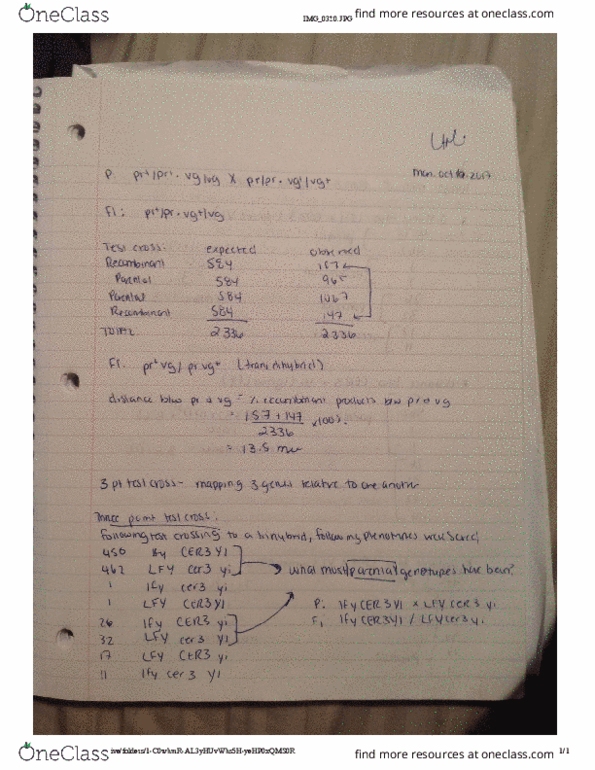 OneClass
IMG_0320.JPG
find more resources at oneclass.com
Mon. oct 2017
P. pr+/pr+ · vg/vg X pr/pr · vg+/vg+
F1: pr+/pr · vg+/vg
Test cross: expected observed
Recombinant 584 157
Parental 584 965
Parental 584 1067
Recombinant 584 147
2336 2336
F1. pr+ vg/ pr vg+ (trans dihybrid)
distance btw pr & vg = % recombinant products btw pr & vg
= 157+147 x100%
2336
= 13.5 mu
3 pt test cross - mapping 3 genes relative to one another
Three point test cross:
following test crossing to a trihybrid, following phenotypes were scored
450 lfy CER3 YI
462 LFY cer3 yi what must parental genotypes have been?
1 lfy cer3 yi
1 LFY CER3 YI P: lfy CER3 YI x LFY cer3 yi
26 lfy CER3 yi F1 lfy CER3 YI / LFY cer3 yi
32 LFY cer3 YI
17 LFY CER3 yi
11 lfy cer3 YI
OneClass
1/1
find more resources at oneclass.com